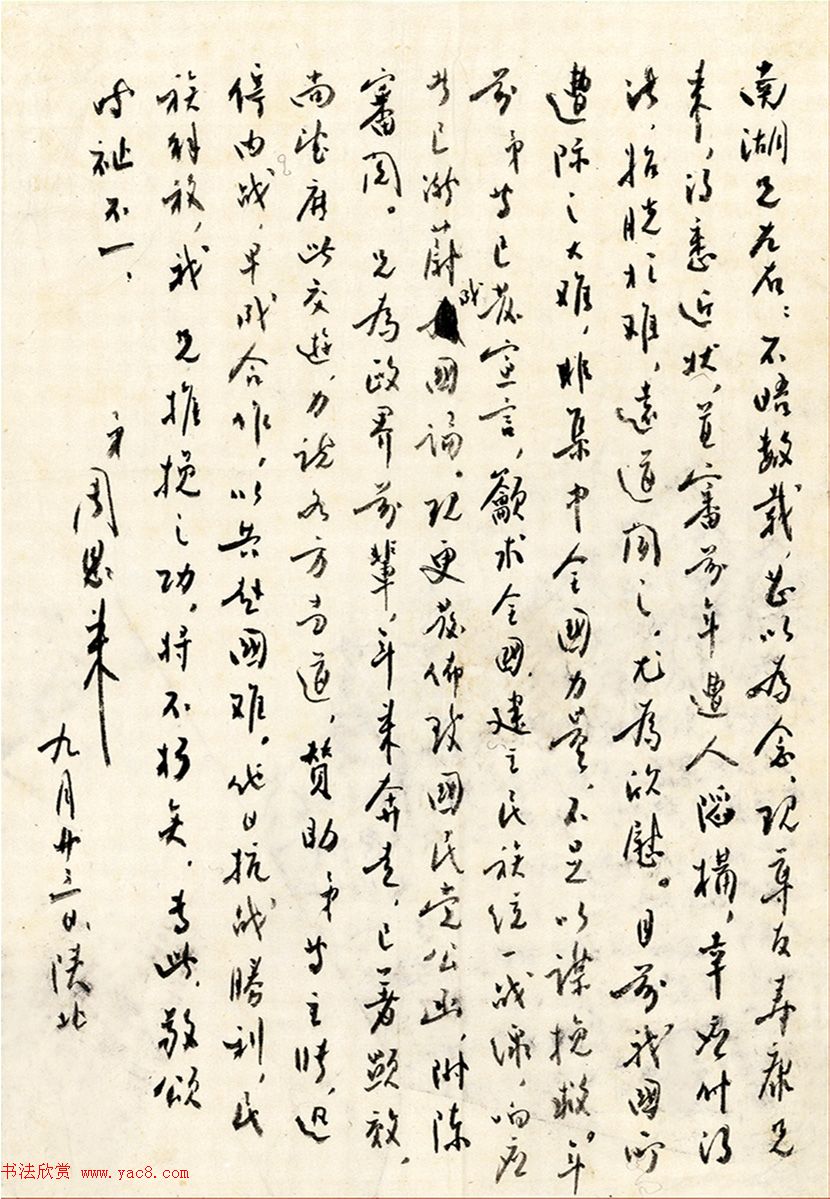 南湖兄左右：不晤数载，甚以为念，现章友寿康兄
来，得悉近状，并审前年遭人陷搆，幸应付得
法，始脱于难，远道闻之，尤为欣慰。目前我国所
遭际之大难，非集中全国力量，不足以谋挽救。年
前弟等已发宣言，籲求全国建立民族统一战线，响应
者已渐蔚成国论。现更发佈致国民党公函，附陈
审阅。兄为政界前辈，年来奔走，已著顯效，
尚望广此交游，力说各方当道，赞助弟等主张，迅
停内战，早成合作，以共赴国难。他日抗战勝利，民
族解放，我兄推挽之功，将不朽矣。专此，敬颂
时祉不一。
弟周恩来
九月廿三日，陕北
书法欣赏 www.yac8.com